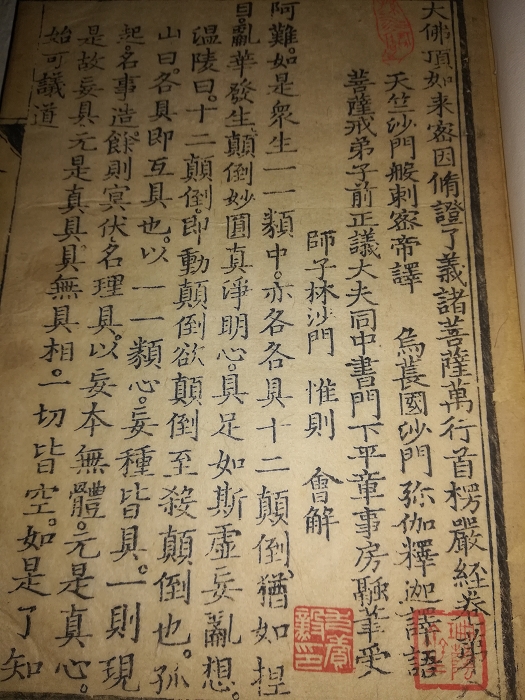 大佛頂如来密因脩證了義諸菩薩萬行首楞嚴經卷第
天竺沙門般剌密帝譯　烏萇國沙門弥伽釋迦譯語
菩薩戒弟子前正議大夫同中書門下平章事房融筆受
師子林沙門　惟則　會解
阿難。如是衆生一一類中。亦各各具十二顛倒。猶如捏
目。亂華發生。顛倒妙圓真淨明心。具足如斯虚妄亂想。
温陵曰。十二顛倒。即動顛倒欲顛倒至殺顛倒也。孤
山曰。各具即互具也。以一一類心。妄種皆具。一則現
起。名事造。餘則冥伏名理具。以妄本無體。元是真心。
是故妄具元是真具。具無具相。一切皆空。如是了知
始可議道